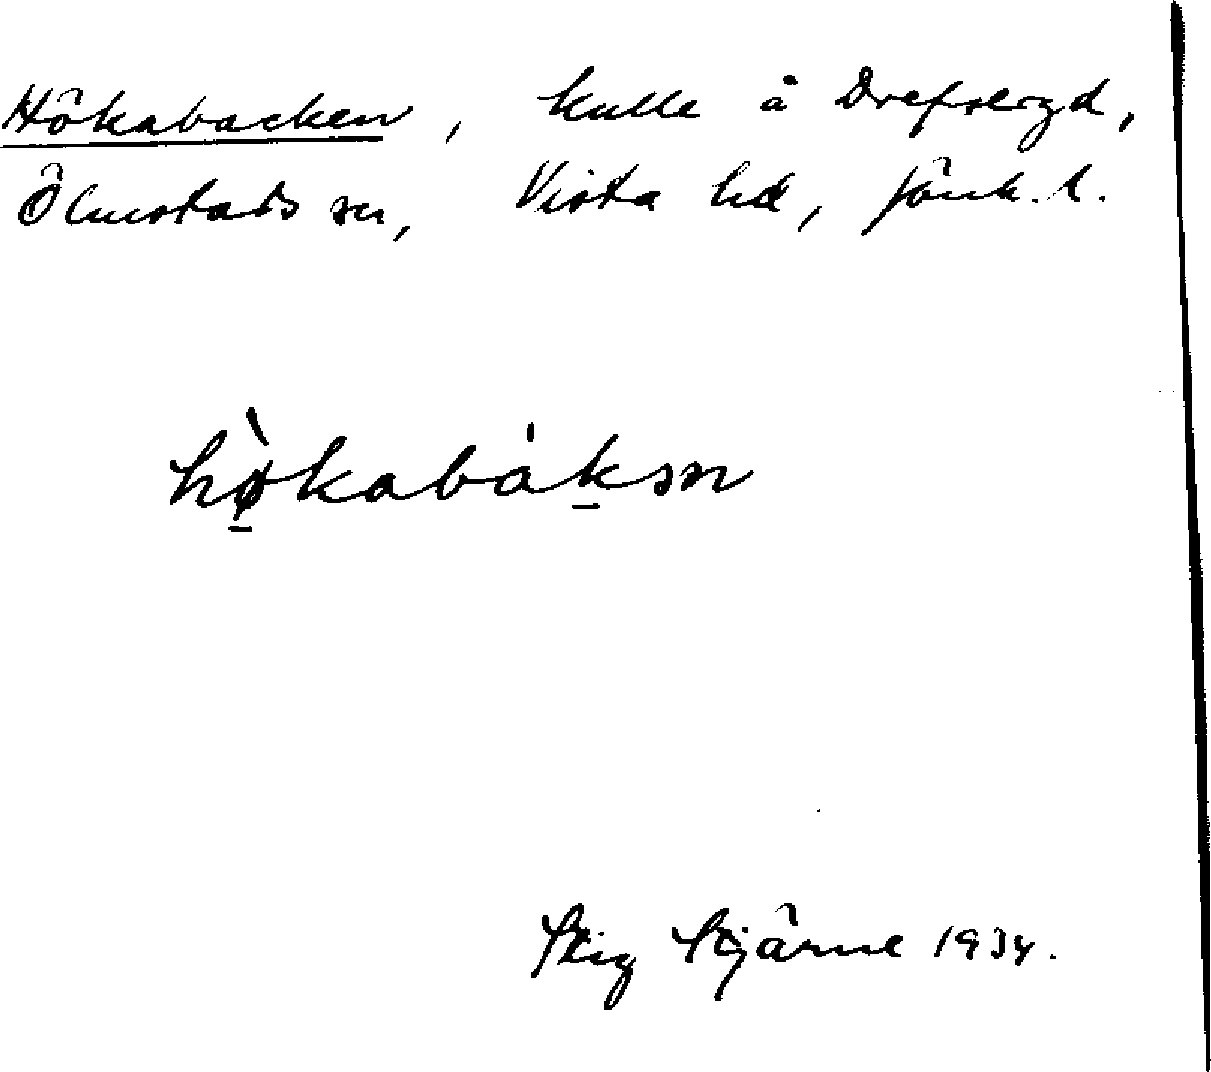 Hökabacken, kulle å Drefseryd,
Ölmstads sn, Vista hd, Jönk. l.
hø̀kabákən
Stig Stjärne 1934.